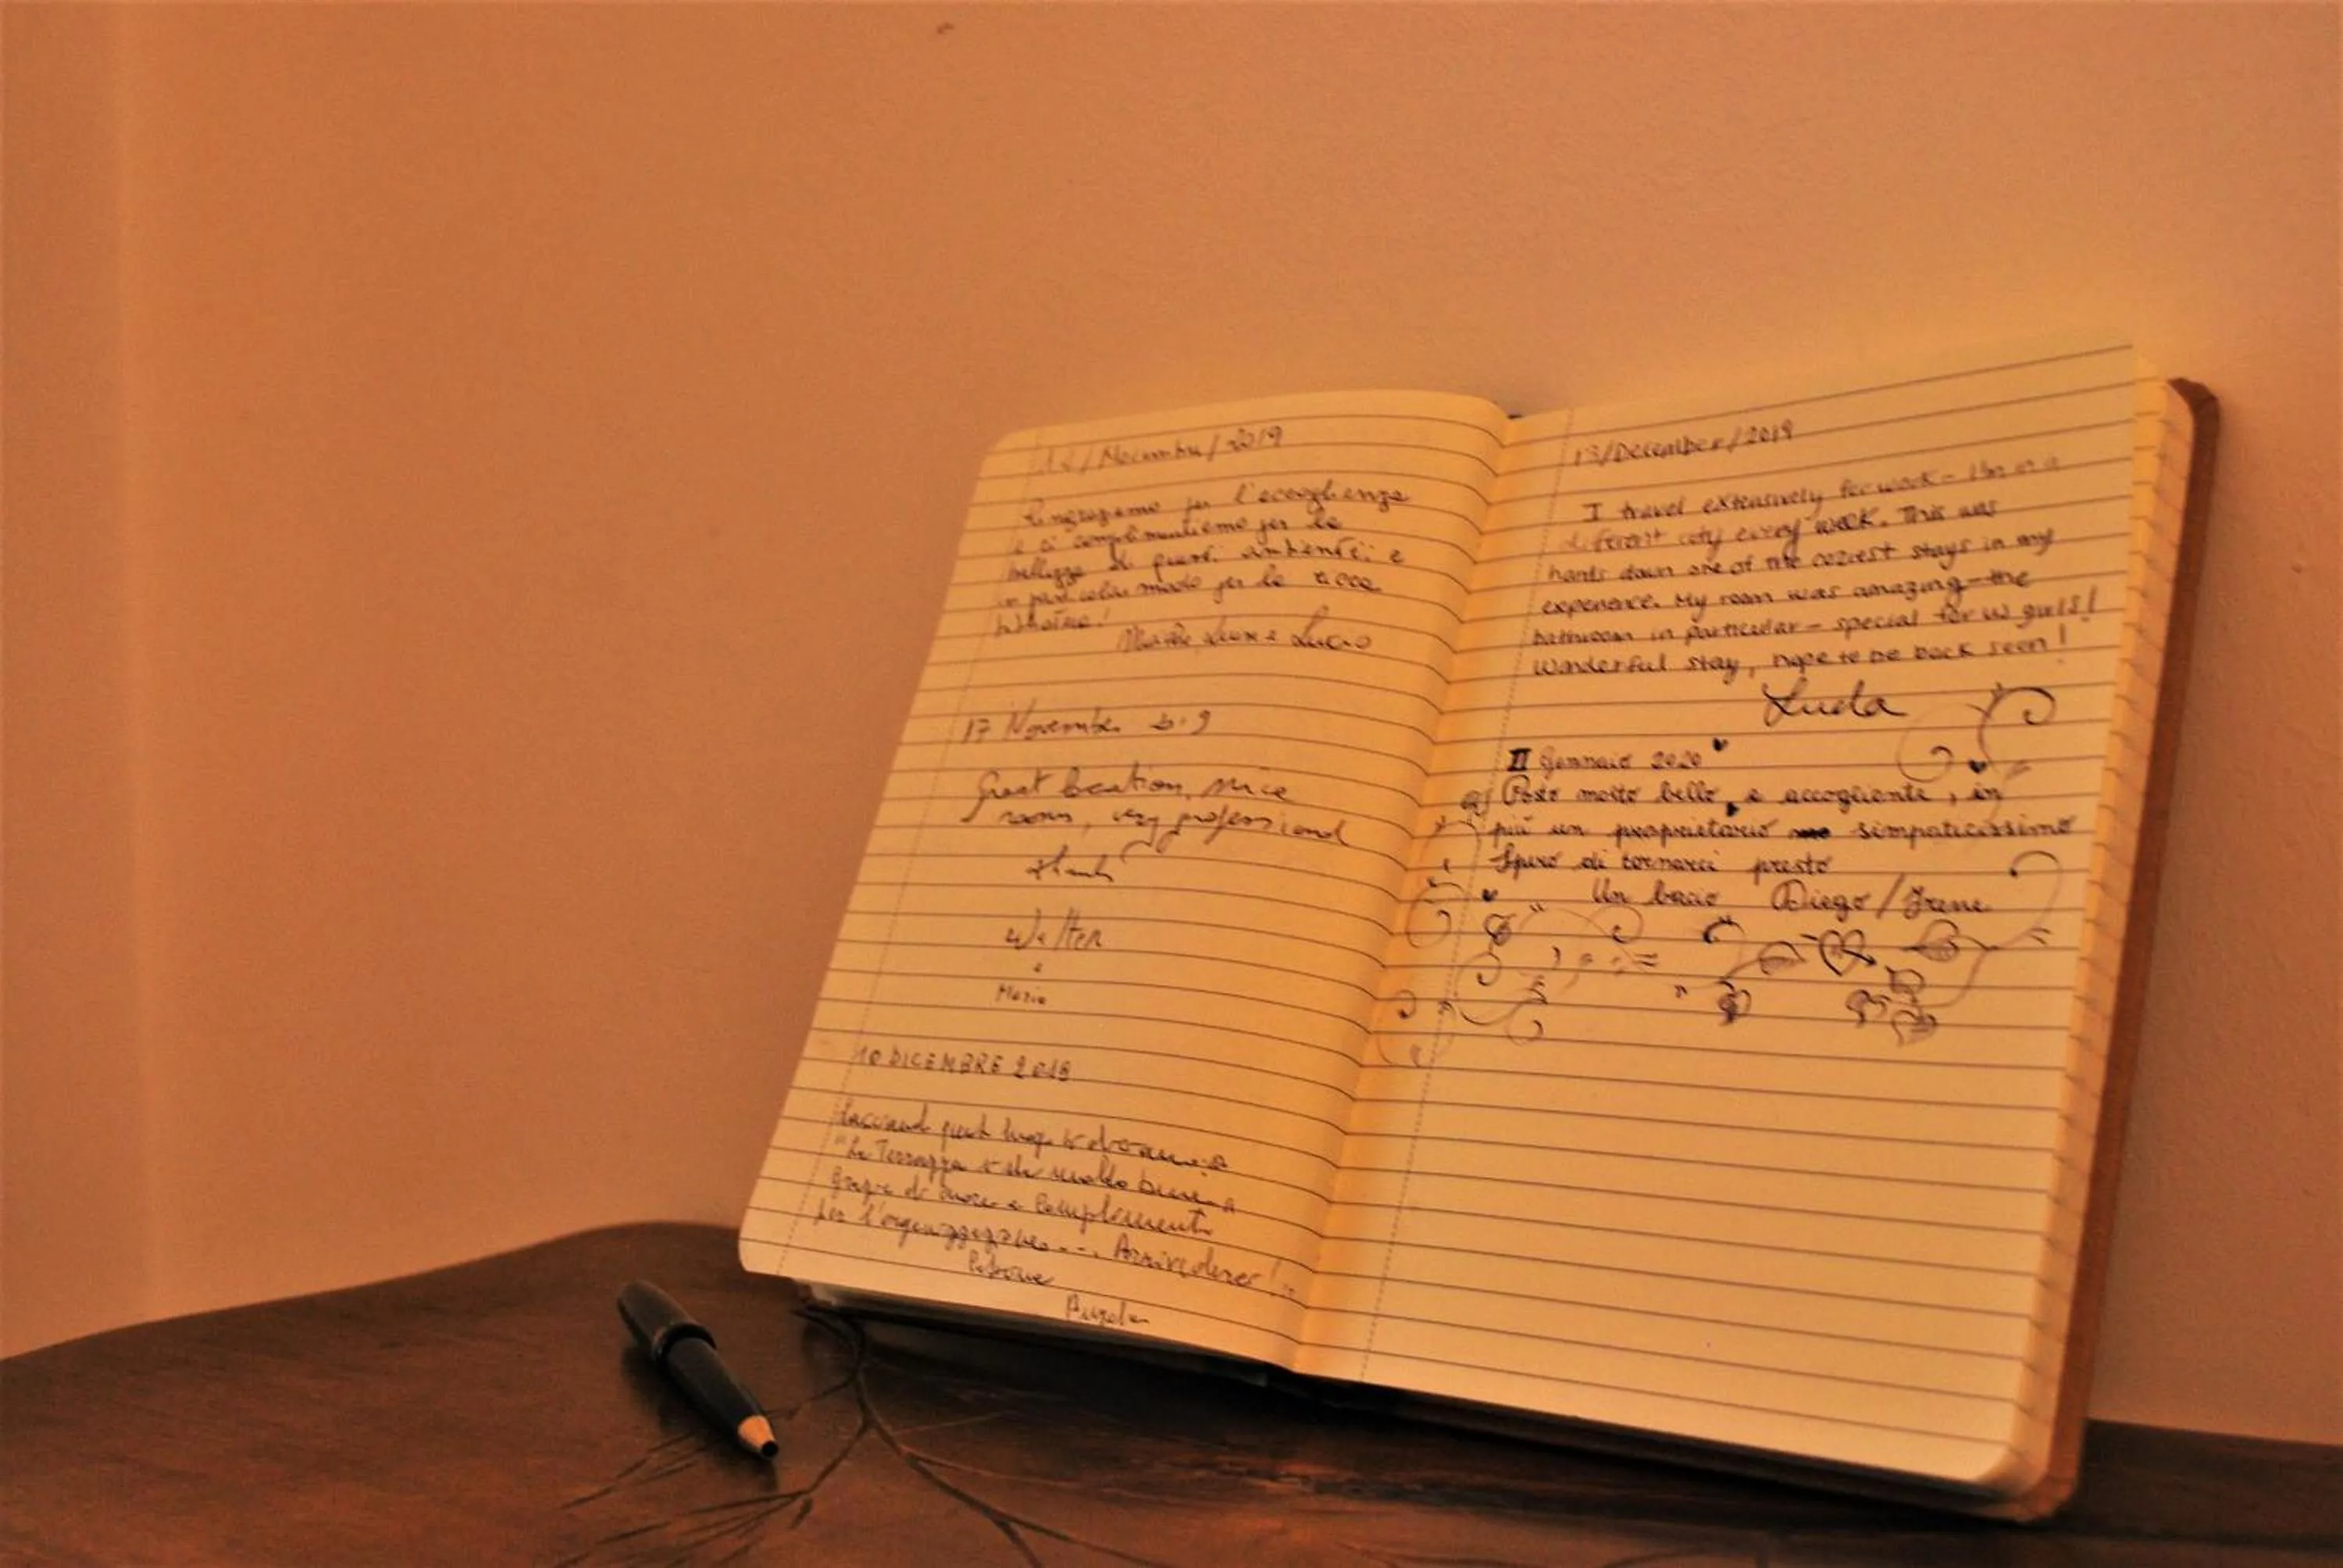 /2019
l'accoglienza
e ci complimentiamo per la
bellezza di questi ambienti e
in particolar modo per la ricca
e Lucio
17 November
Great location, nice
room, very professional
Walter
e
Maria
10 DICEMBRE 2019
"La Terrazza molto bene
grazie di cuore e complimenti
per l'organizzazione.... Arrivederci!..
13/December/2019
I travel extensively for work - I'm in a
different city every week. This was
hands down one of the coziest stays in my
experience. My room was amazing - the
bathroom in particular - special for us girls!
Wonderful stay, hope to be back soon!
Luda
II Gennaio 2020
Posto molto bello e accogliente, in
più un proprietario simpaticissimo
Spero di tornarci presto
Un bacio Diego/Irene